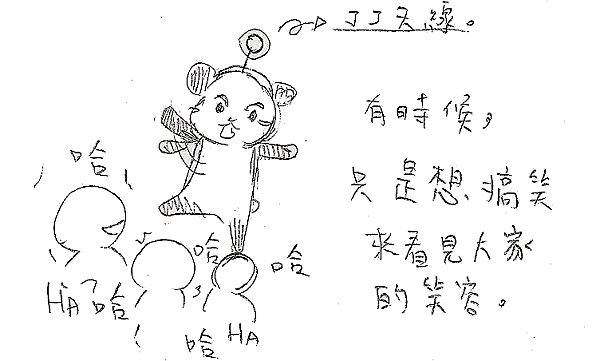 丁丁天線。
有時候，
只是想搞笑
來看見大家
的笑容。
哈
哈
哈
HA 哈
哈 HA